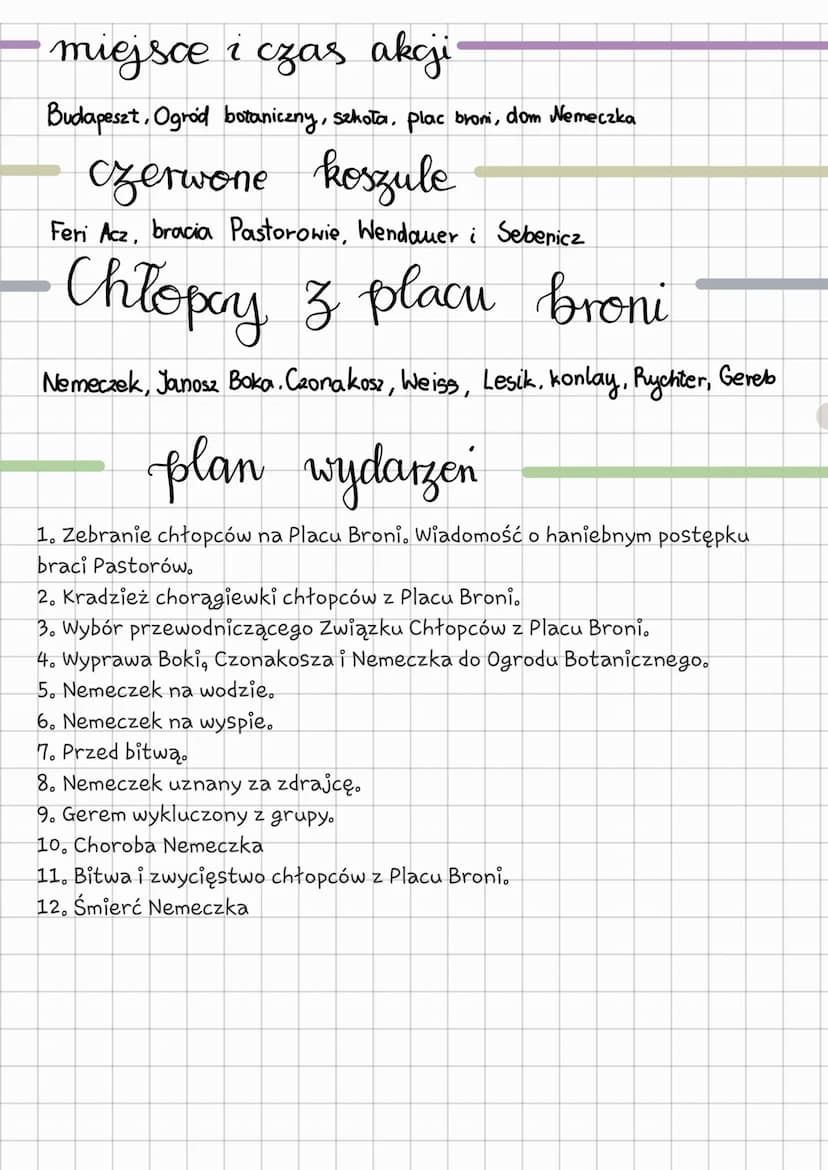 miejsce i czas akcji
Budapeszt, Ogród botaniczny, szkoła, plac broni, dom Nemeczka
czerwone koszule
Feri Acz, bracia Pastorowie, Wendauer i Sebenicz
Chłopcy z placu broni
Nemeczek, Janosz Boka, Czonakosz, Weiss, Lesik, konlay, Rychter, Gereb
plan wydarzeń
1. Zebranie chłopców na Placu Broni. Wiadomość o haniebnym postępku
braci Pastorów.
2. Kradzież chorągiewki chłopców z Placu Broni.
3. Wybór przewodniczącego Związku Chłopców z Placu Broni.
4. Wyprawa Boki, Czonakosza i Nemeczka do Ogrodu Botanicznego.
5. Nemeczek na wodzie.
6. Nemeczek na wyspie.
7. Przed bitwą.
8. Nemeczek uznany za zdrajcę.
9. Gerem wykluczony z grupy.
10. Choroba Nemeczka
11. Bitwa i zwycięstwo chłopców z Placu Broni.
12. Śmierć Nemeczka